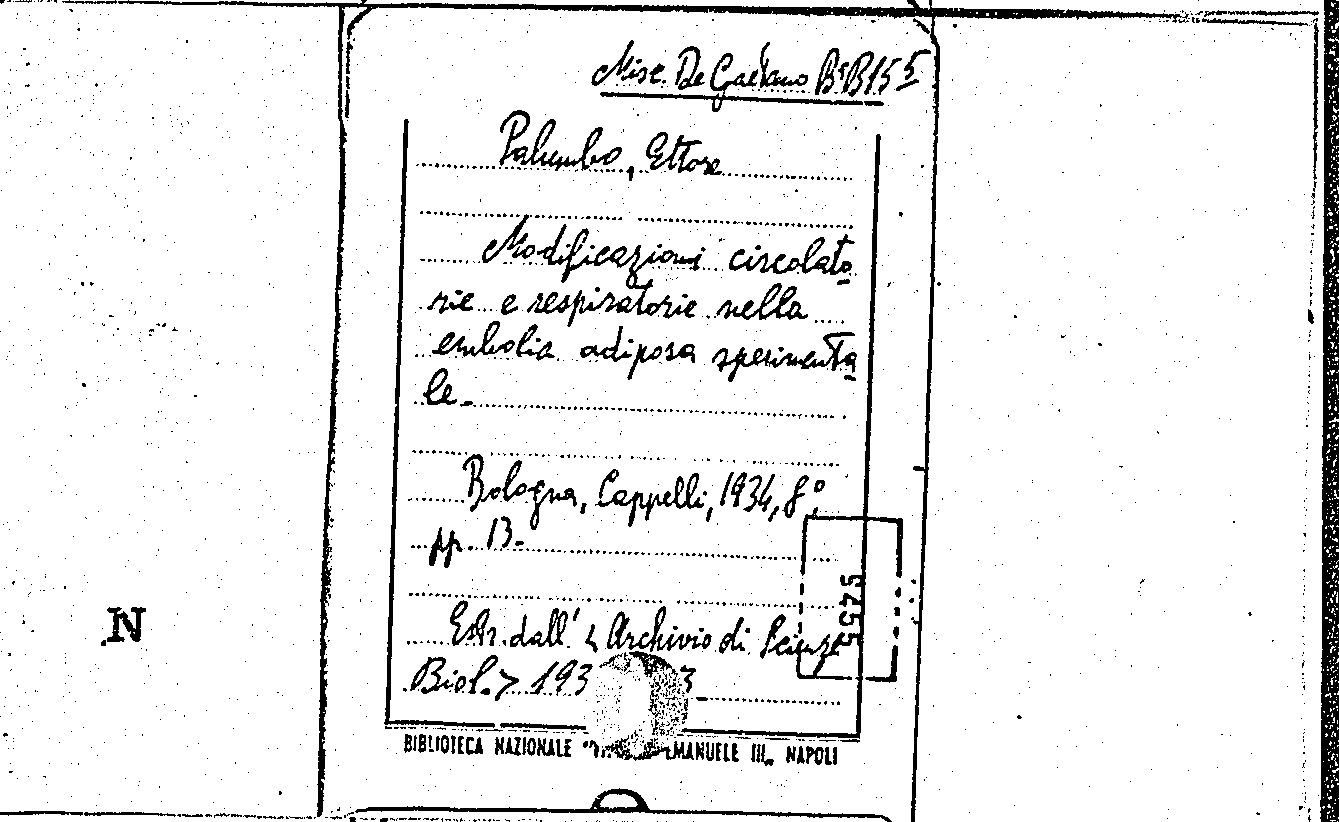 Misc. De Gaetano B^s B 155
Palumbo, Ettore
Modificazioni circolato
rie e respiratorie nella
embolia adiposa sperimenta
le.
Bologna, Cappelli, 1934, 8°,
pp. 13.
Estr. dall' < Archivio di Scienze
Biol. > 193 3
N
5455
BIBLIOTECA NAZIONALE EMANUELE III„ NAPOLI